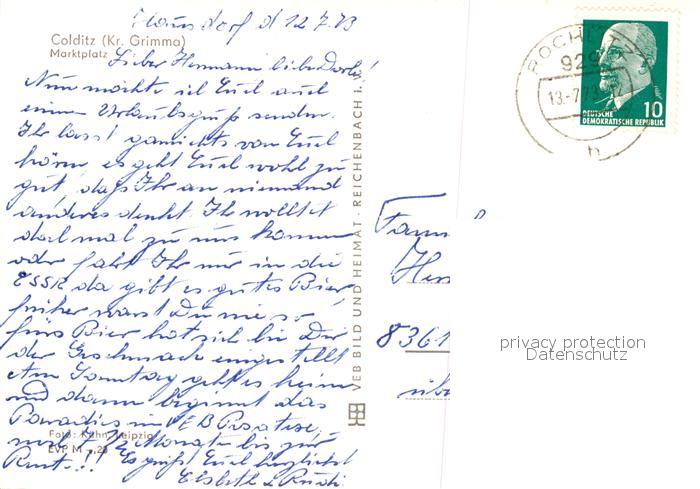 Hausdorf d 12.7.73
Colditz (Kr. Grimma)
Marktplatz
Lieber Hermann liebe Dorle!
Nun möchte ich Euch auch
einen Urlaubsgruß senden.
Ihr lasst garnichts von Euch
hören, es geht Euch wohl zu
gut, daß Ihr an niemand
anderes denkt. Ihr wolltet
doch mal zu uns kommen
oder fahrt Ihr nur in die
ČSSR da gibt es gutes Bier
früher warst Du nie so
fürs Bier hat sich bei Dir
der Geschmack eingestellt
Am Sonntag geht es heim
und dann beginnt das
Paradies im VEB
noch Monate bis zur
Rente!! Es grüßt Euch herzlichst
Elsbeth u Rudi.
Foto: Kühn, Leipzig
EVP M -,20
VEB BILD UND HEIMAT · REICHENBACH I.
ROCHLITZ
929
13.-7.73
h
10
DEUTSCHE
DEMOKRATISCHE REPUBLIK
Fam
Her
8361
übe
privacy protection
Datenschutz